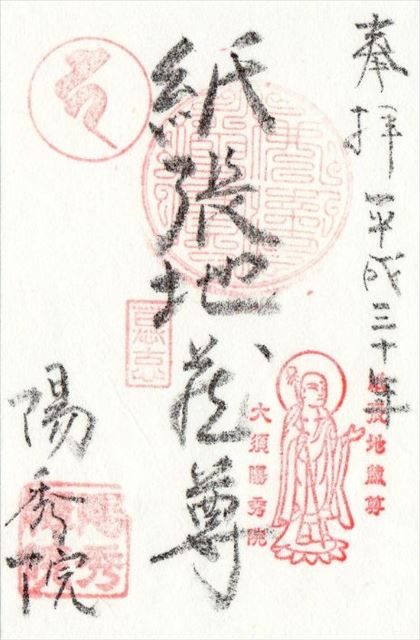 奉拝 平成三十年
紙張地蔵尊
陽秀院
大須陽秀院
地蔵尊
陽秀